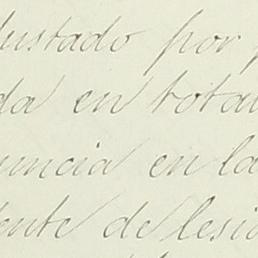 justado por
da en total
uncia en la
ente de lesi